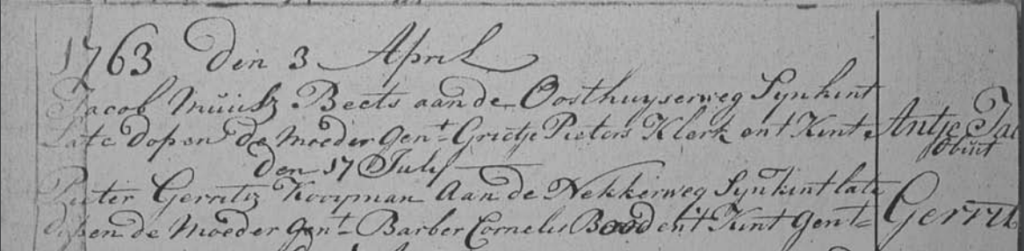 1763 den 3 April
Jacob Muusz Beets aan de Oosthuyserweg Synkint
Late dopen de moeder gent Grietje Pieters Klerk ent Kint Antje Jac
obiit
den 17 July
Pieter Gerritz Koopman aan de Nekkerweg Synkint late
dopen de Moeder gent Barber Cornelis Bood ent Kint gent Gerrit